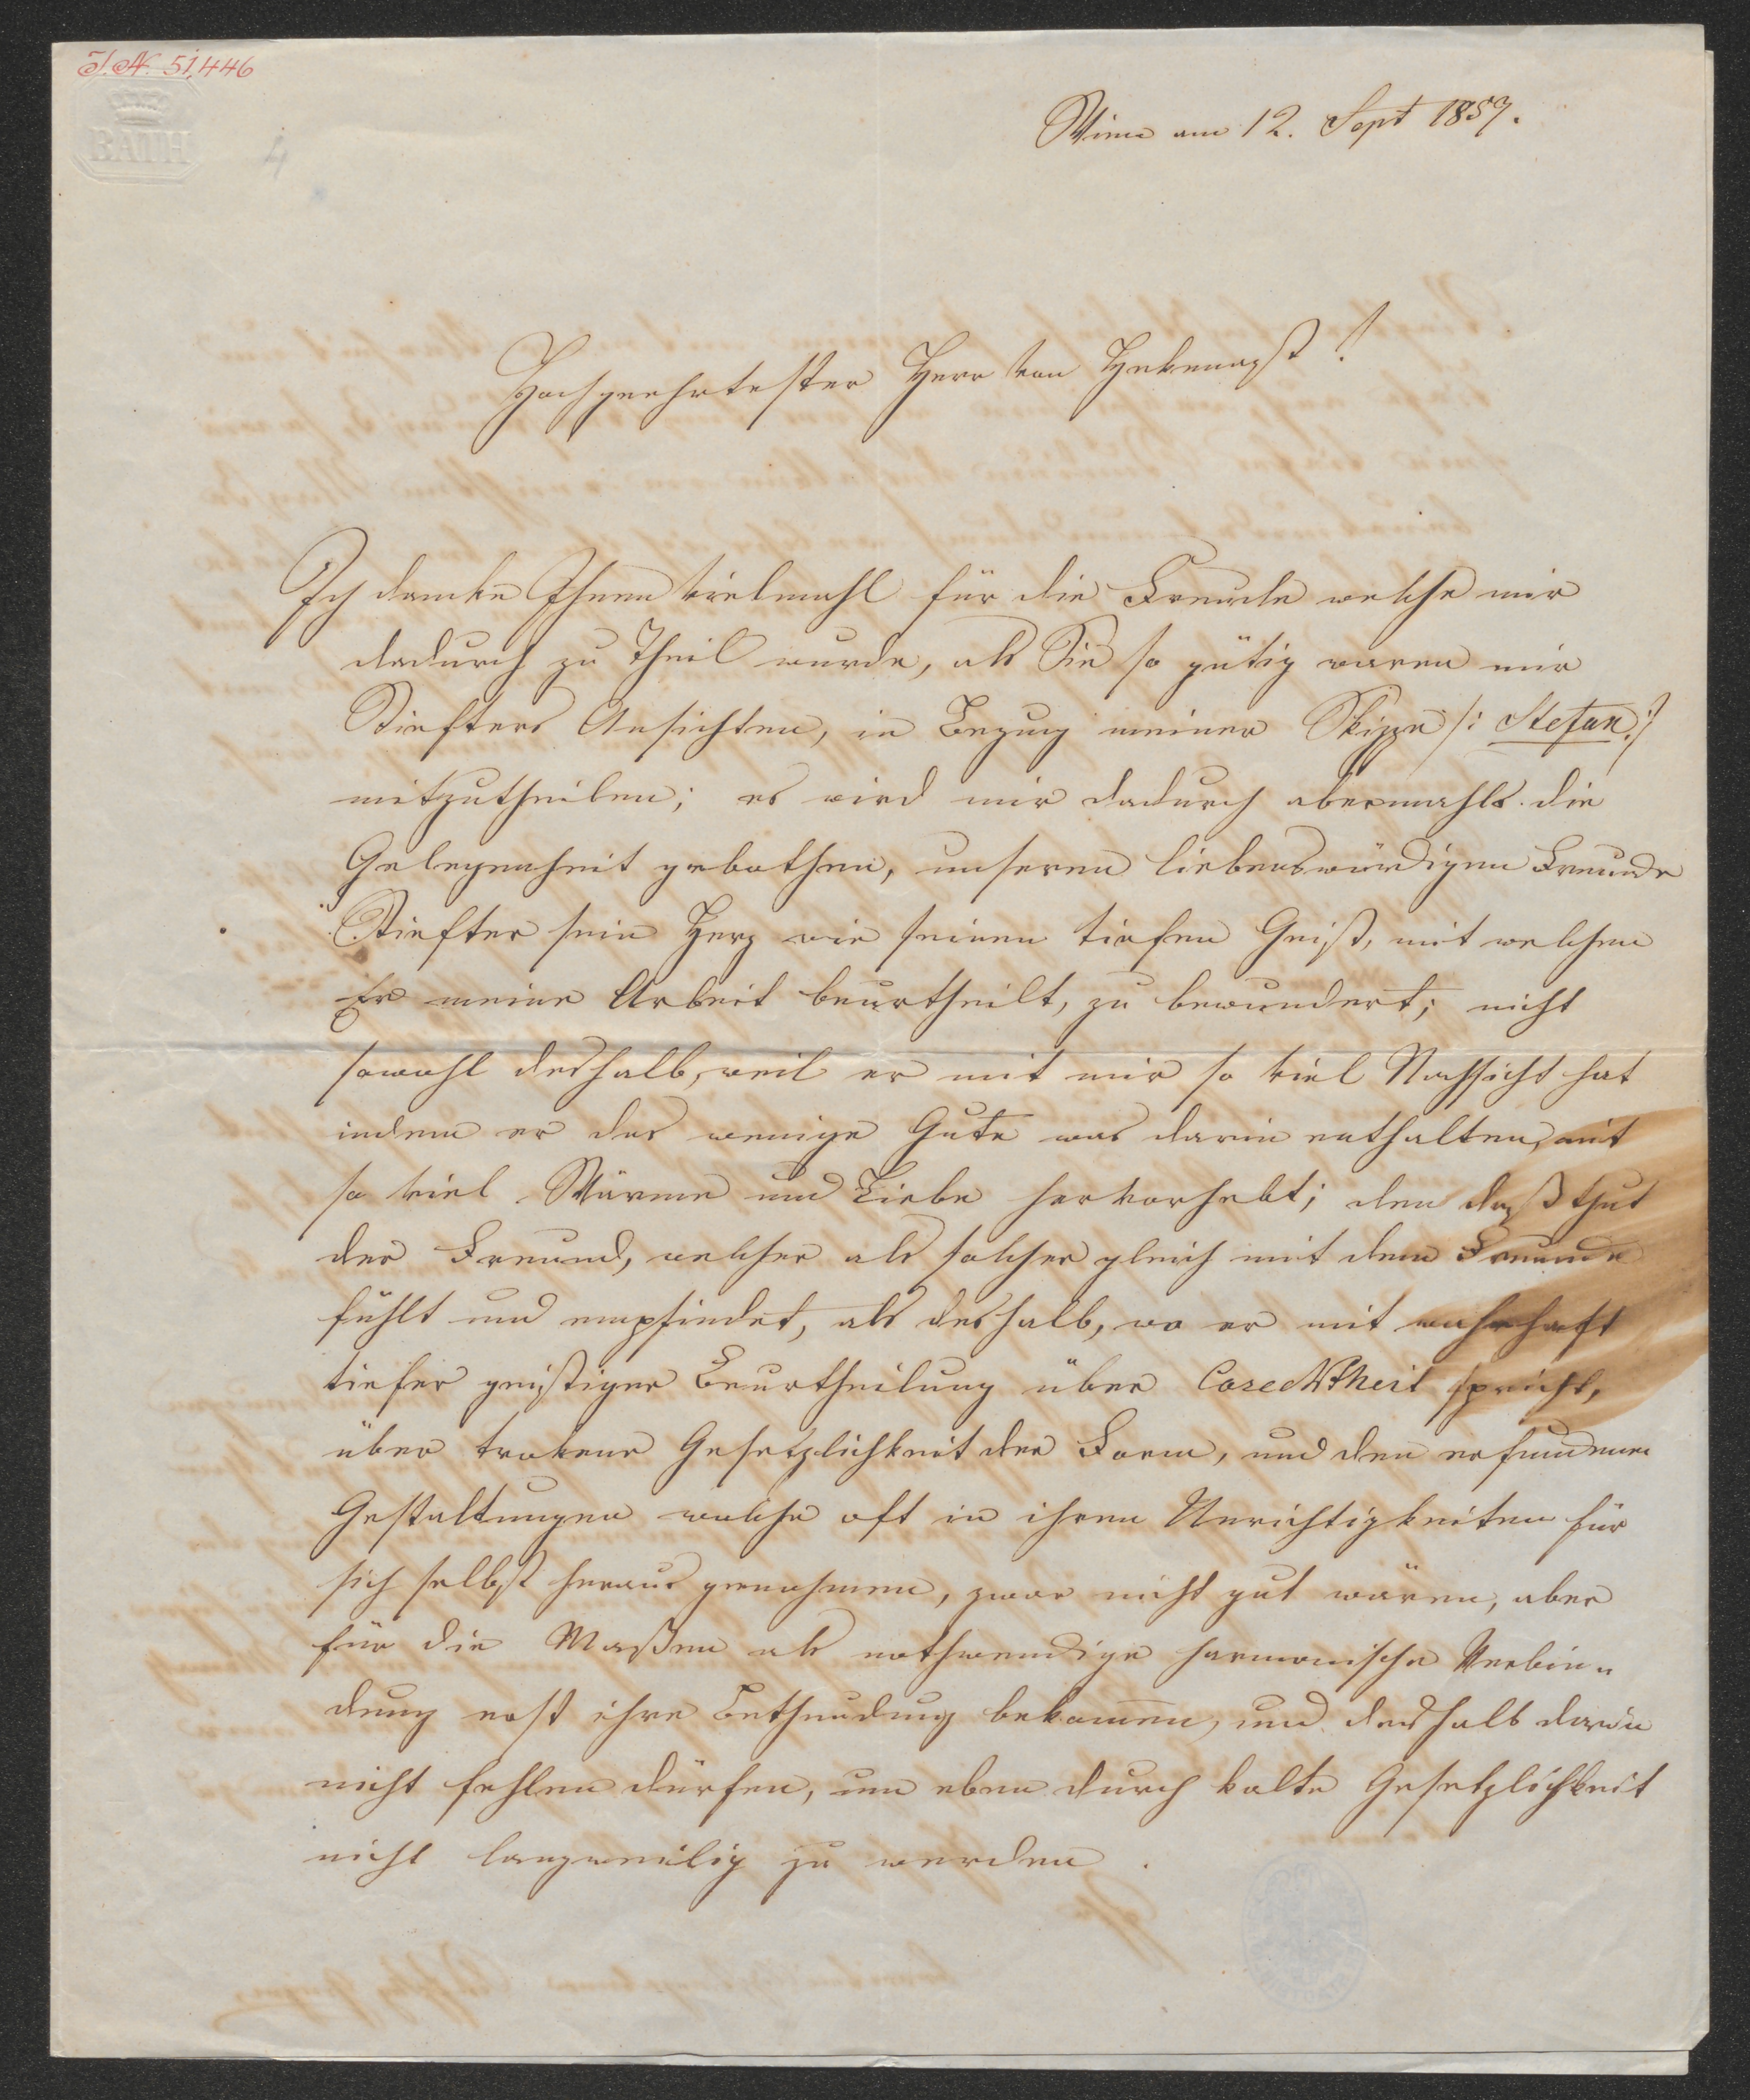 I.N. 51,446
BATH
4
Wien am 12. Sept 1857.
Hochgeehrtester Herr von Hekenast!
Ich danke Ihnen vielmahl für die Freude welche mir
dadurch zu Theil wurde, als Sie so gütig waren mir
Stiefters Ansichten, in Bezug meiner Skizze /: Stefan :/
mitzutheilen; es wird mir dadurch abermahls die
Gelegenheit gebothen, unseren liebenswürdigen Freunde
Stiefter sein Herz wie seinen tiefen Geist, mit welchem
Er meine Arbeit beurtheilt, zu bewundert; nicht
sowohl deshalb, weil er mit mir so viel Nachsicht hat
indem er das wenige Gute was darin enthalten, mit
so viel Wärme und Liebe hervorhebt; den daß thut
der Freund, welcher als solcher gleich mit dem Freunde
fühlt und empfindet, als deshalb, wo er mit wahrhaft
tiefer geistiger Beurtheilung über CorecNtheit spricht,
über trokene Gesetzlichkeit der Form, und den erfundenen
Gestaltungen welche oft in ihren Unrichtigkeiten für
sich selbst heraus genohmen, zwar nicht gut wären, aber
für die Maßen als nothwendige harmonische Verbin„
dung erst ihre bekommen, und deshalb darin
nicht fehlen dürfen, um eben durch kalte Gesetzlichkeit
nicht langweilig zu werden.